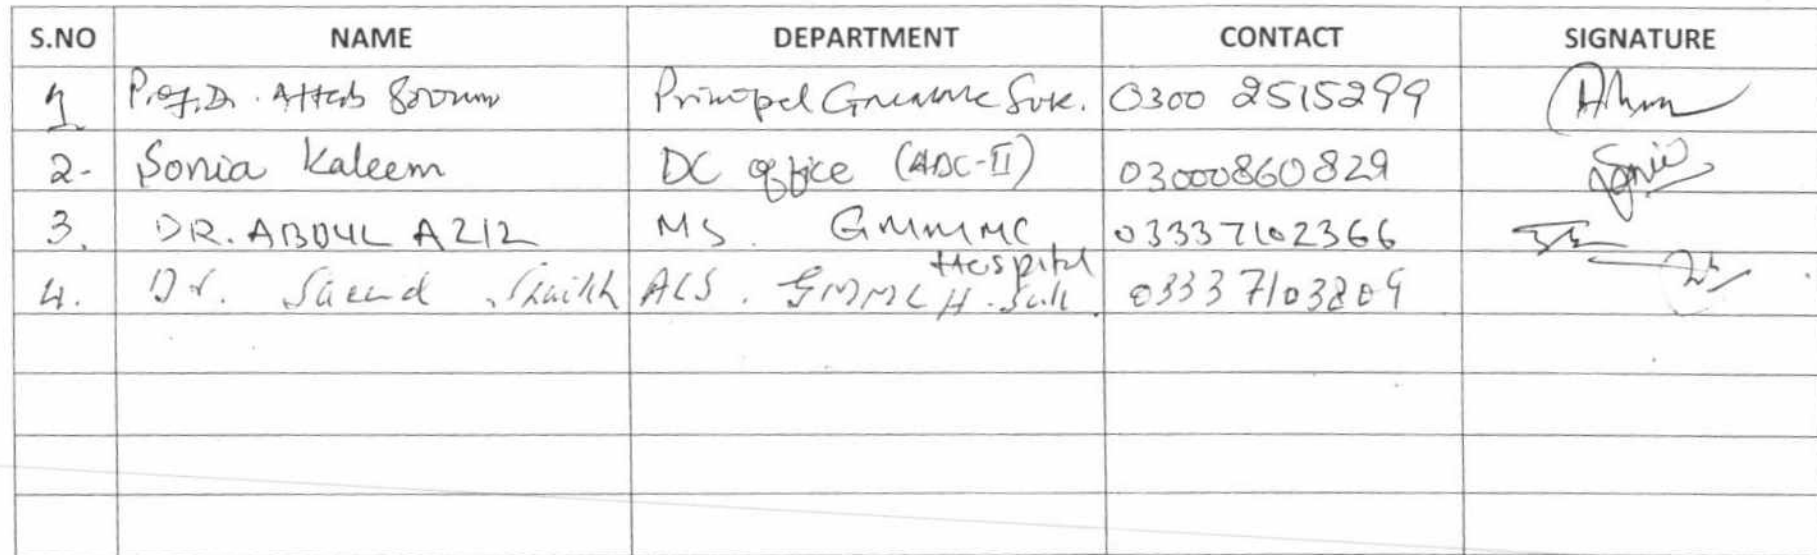 S.NO NAME DEPARTMENT CONTACT SIGNATURE
1 Prof. Dr. Principal GMMMC Suk. 0300 2515299
2- Sonia Kaleem DC office (ADC-II) 03000860829 Sonia
3. DR. ABDUL AZIZ MS. GMMMC 03337102366
Hospital
4. Dr. Saeed Shaikh GMMCH. Suk. 03337103809